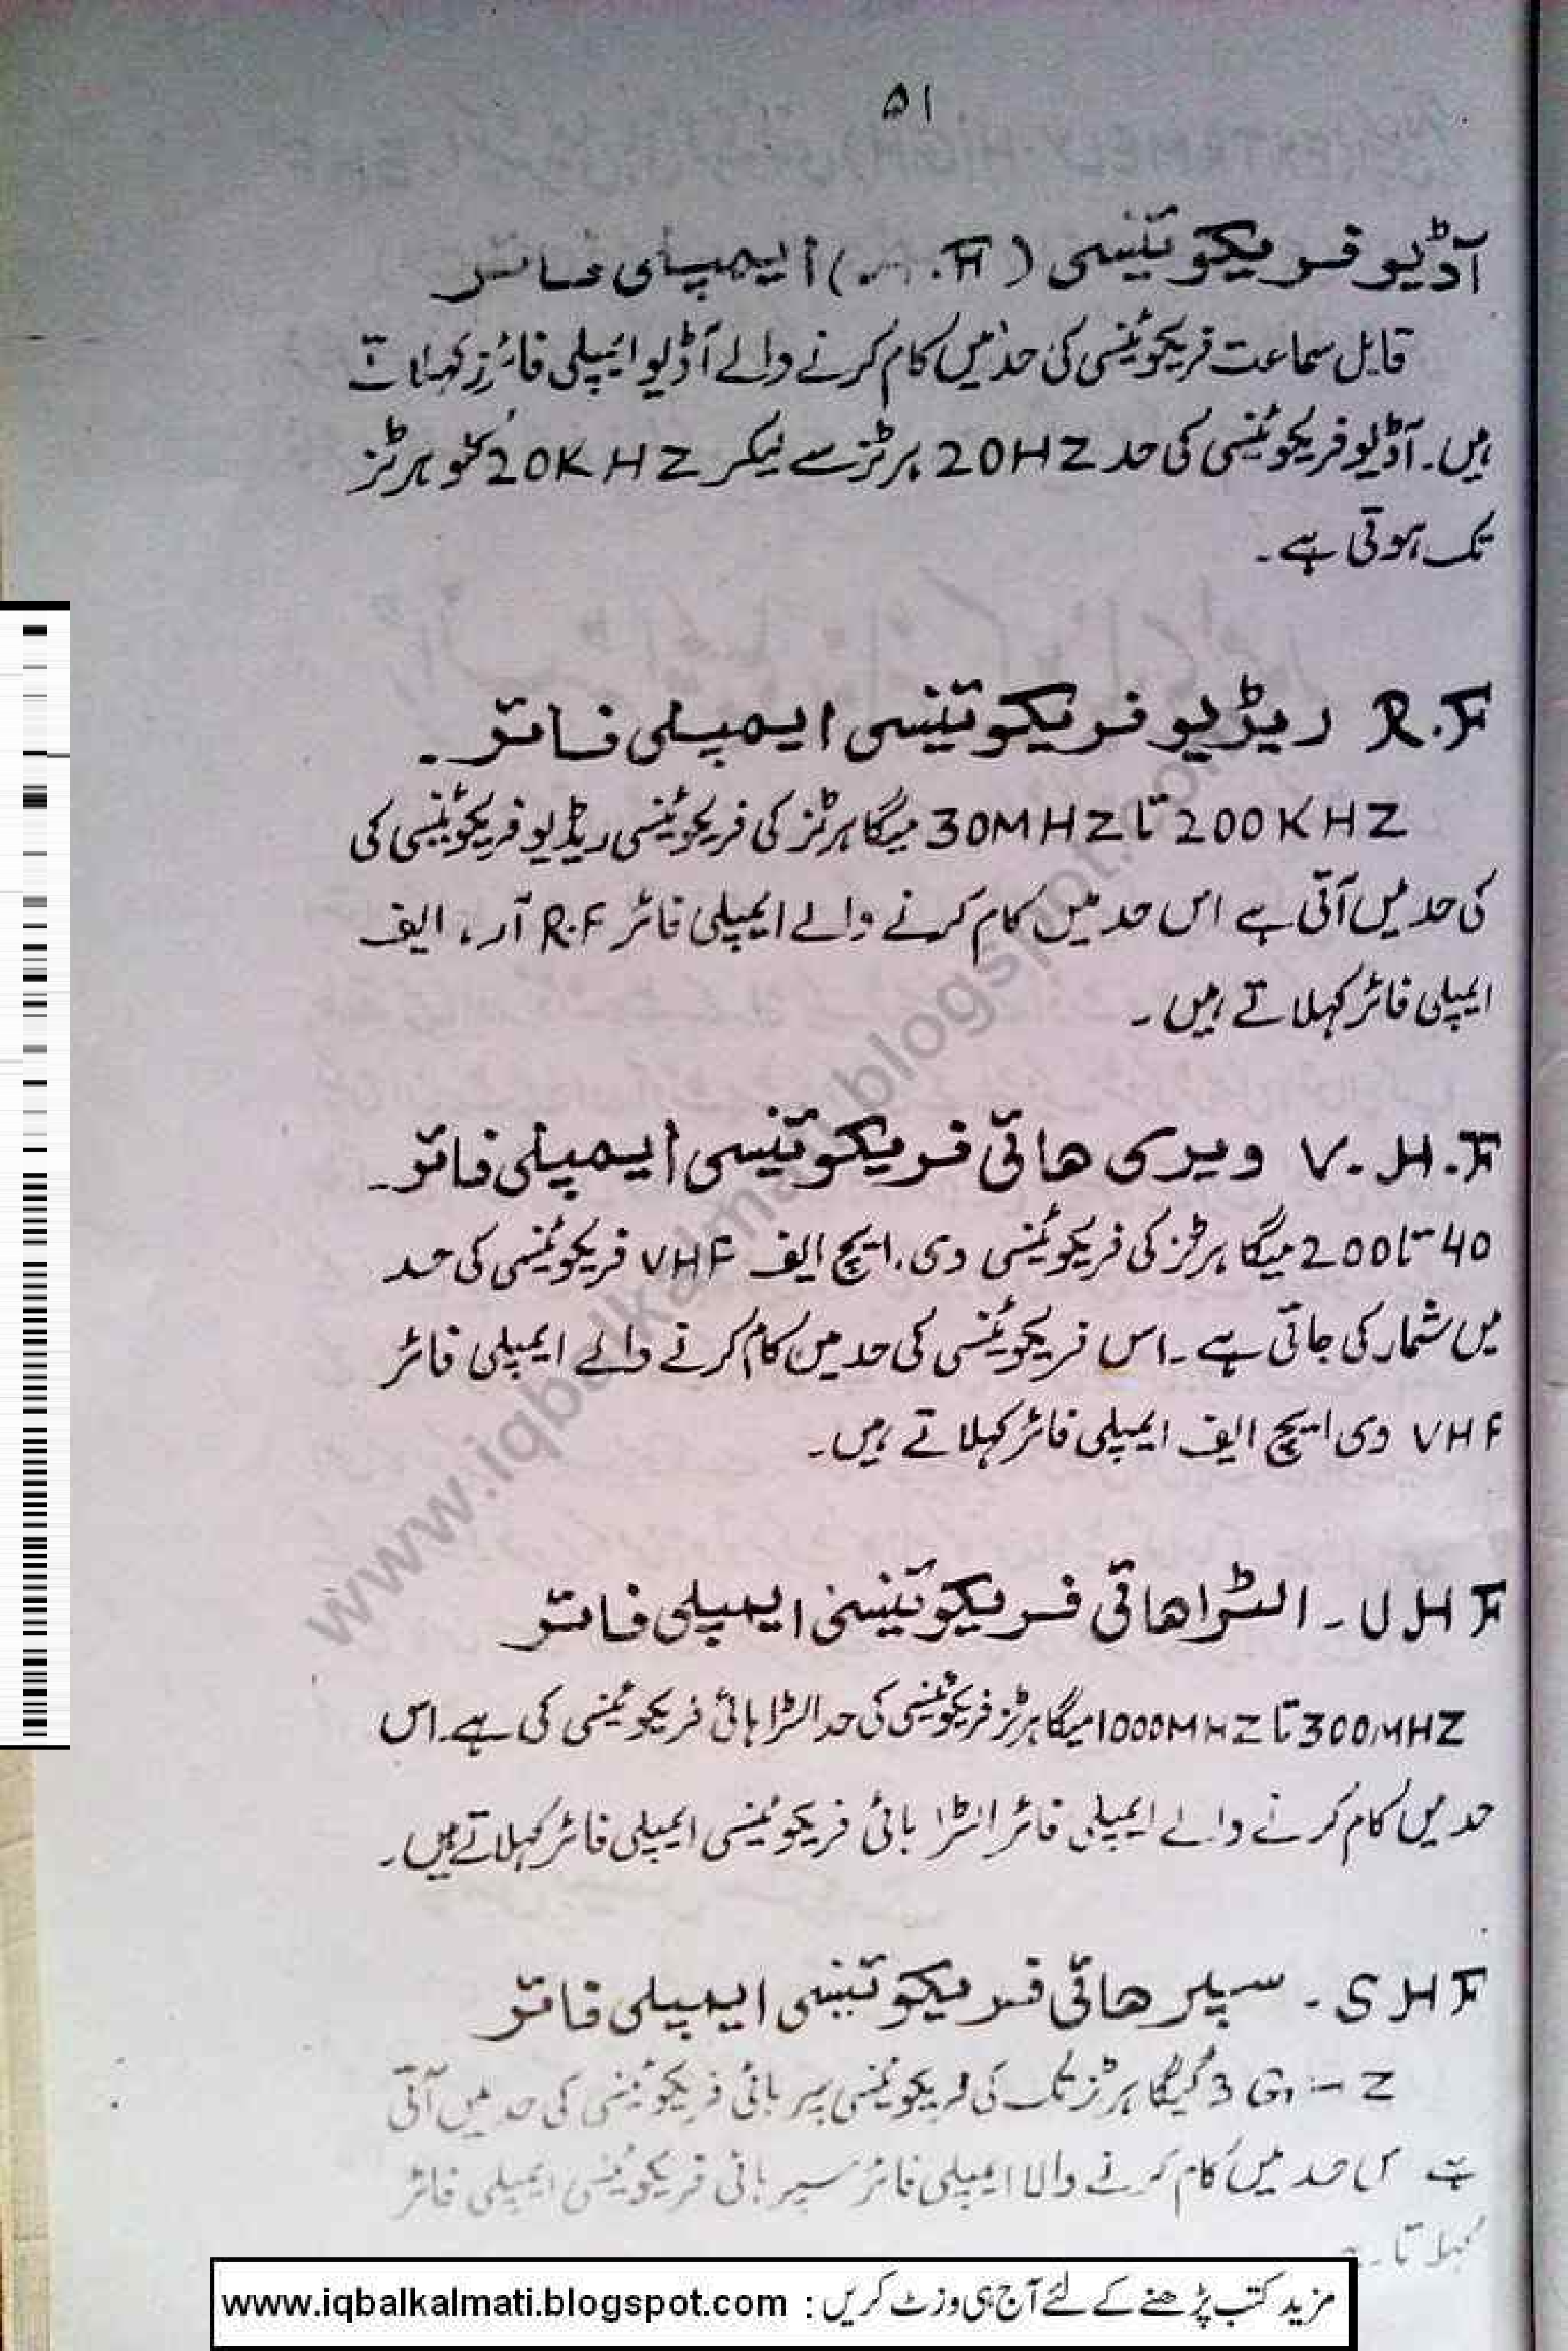 ۵۱
آڈیو فریکوئنسی ( .F) ایمپلی فائر
قابل سماعت فریکوئنسی کی حد میں کام کرنے والے آڈیو ایمپلی فائرز کہلاتے
ہیں۔ آڈیو فریکوئنسی کی حد 20HZ ہرٹز سے لیکر 20KHZ کلو ہرٹز
تک ہوتی ہے۔
R.F ریڈیو فریکوئنسی ایمپلی فائر۔
200KHZ تا 30MHZ میگا ہرٹز کی فریکوئنسی ریڈیو فریکوئنسی کی
کی حد میں آتی ہے اس حد میں کام کرنے والے ایمپلی فائر R.F آر، ایف
ایمپلی فائر کہلاتے ہیں۔
V.H.F ویری ہائی فریکوئنسی ایمپلی فائر۔
40 تا 200 میگا ہرٹز کی فریکوئنسی وی، ایچ ایف VHF فریکوئنسی کی حد
میں شمار کی جاتی ہے۔ اس فریکوئنسی کی حد میں کام کرنے والے ایمپلی فائر
VHF وی ایچ ایف ایمپلی فائر کہلاتے ہیں۔
UHF ۔ الٹرا ہائی فریکوئنسی ایمپلی فائر
300MHZ تا 1000MHZ میگا ہرٹز فریکوئنسی کی حد الٹرا ہائی فریکوئنسی کی ہے۔ اس
حد میں کام کرنے والے ایمپلی فائر الٹرا ہائی فریکوئنسی ایمپلی فائر کہلاتے ہیں۔
SHF ۔ سپر ہائی فریکوئنسی ایمپلی فائر
3 GHZ گیگا ہرٹز تک کی فریکوئنسی سپر ہائی فریکوئنسی کی حد میں آتی
ہے اس حد میں کام کرنے والا ایمپلی فائر سپر ہائی فریکوئنسی ایمپلی فائر
کہلاتا
مزید کتب پڑھنے کے لئے آج ہی وزٹ کریں : www.iqbalkalmati.blogspot.com
www.iqbalkalmati.blogspot.com